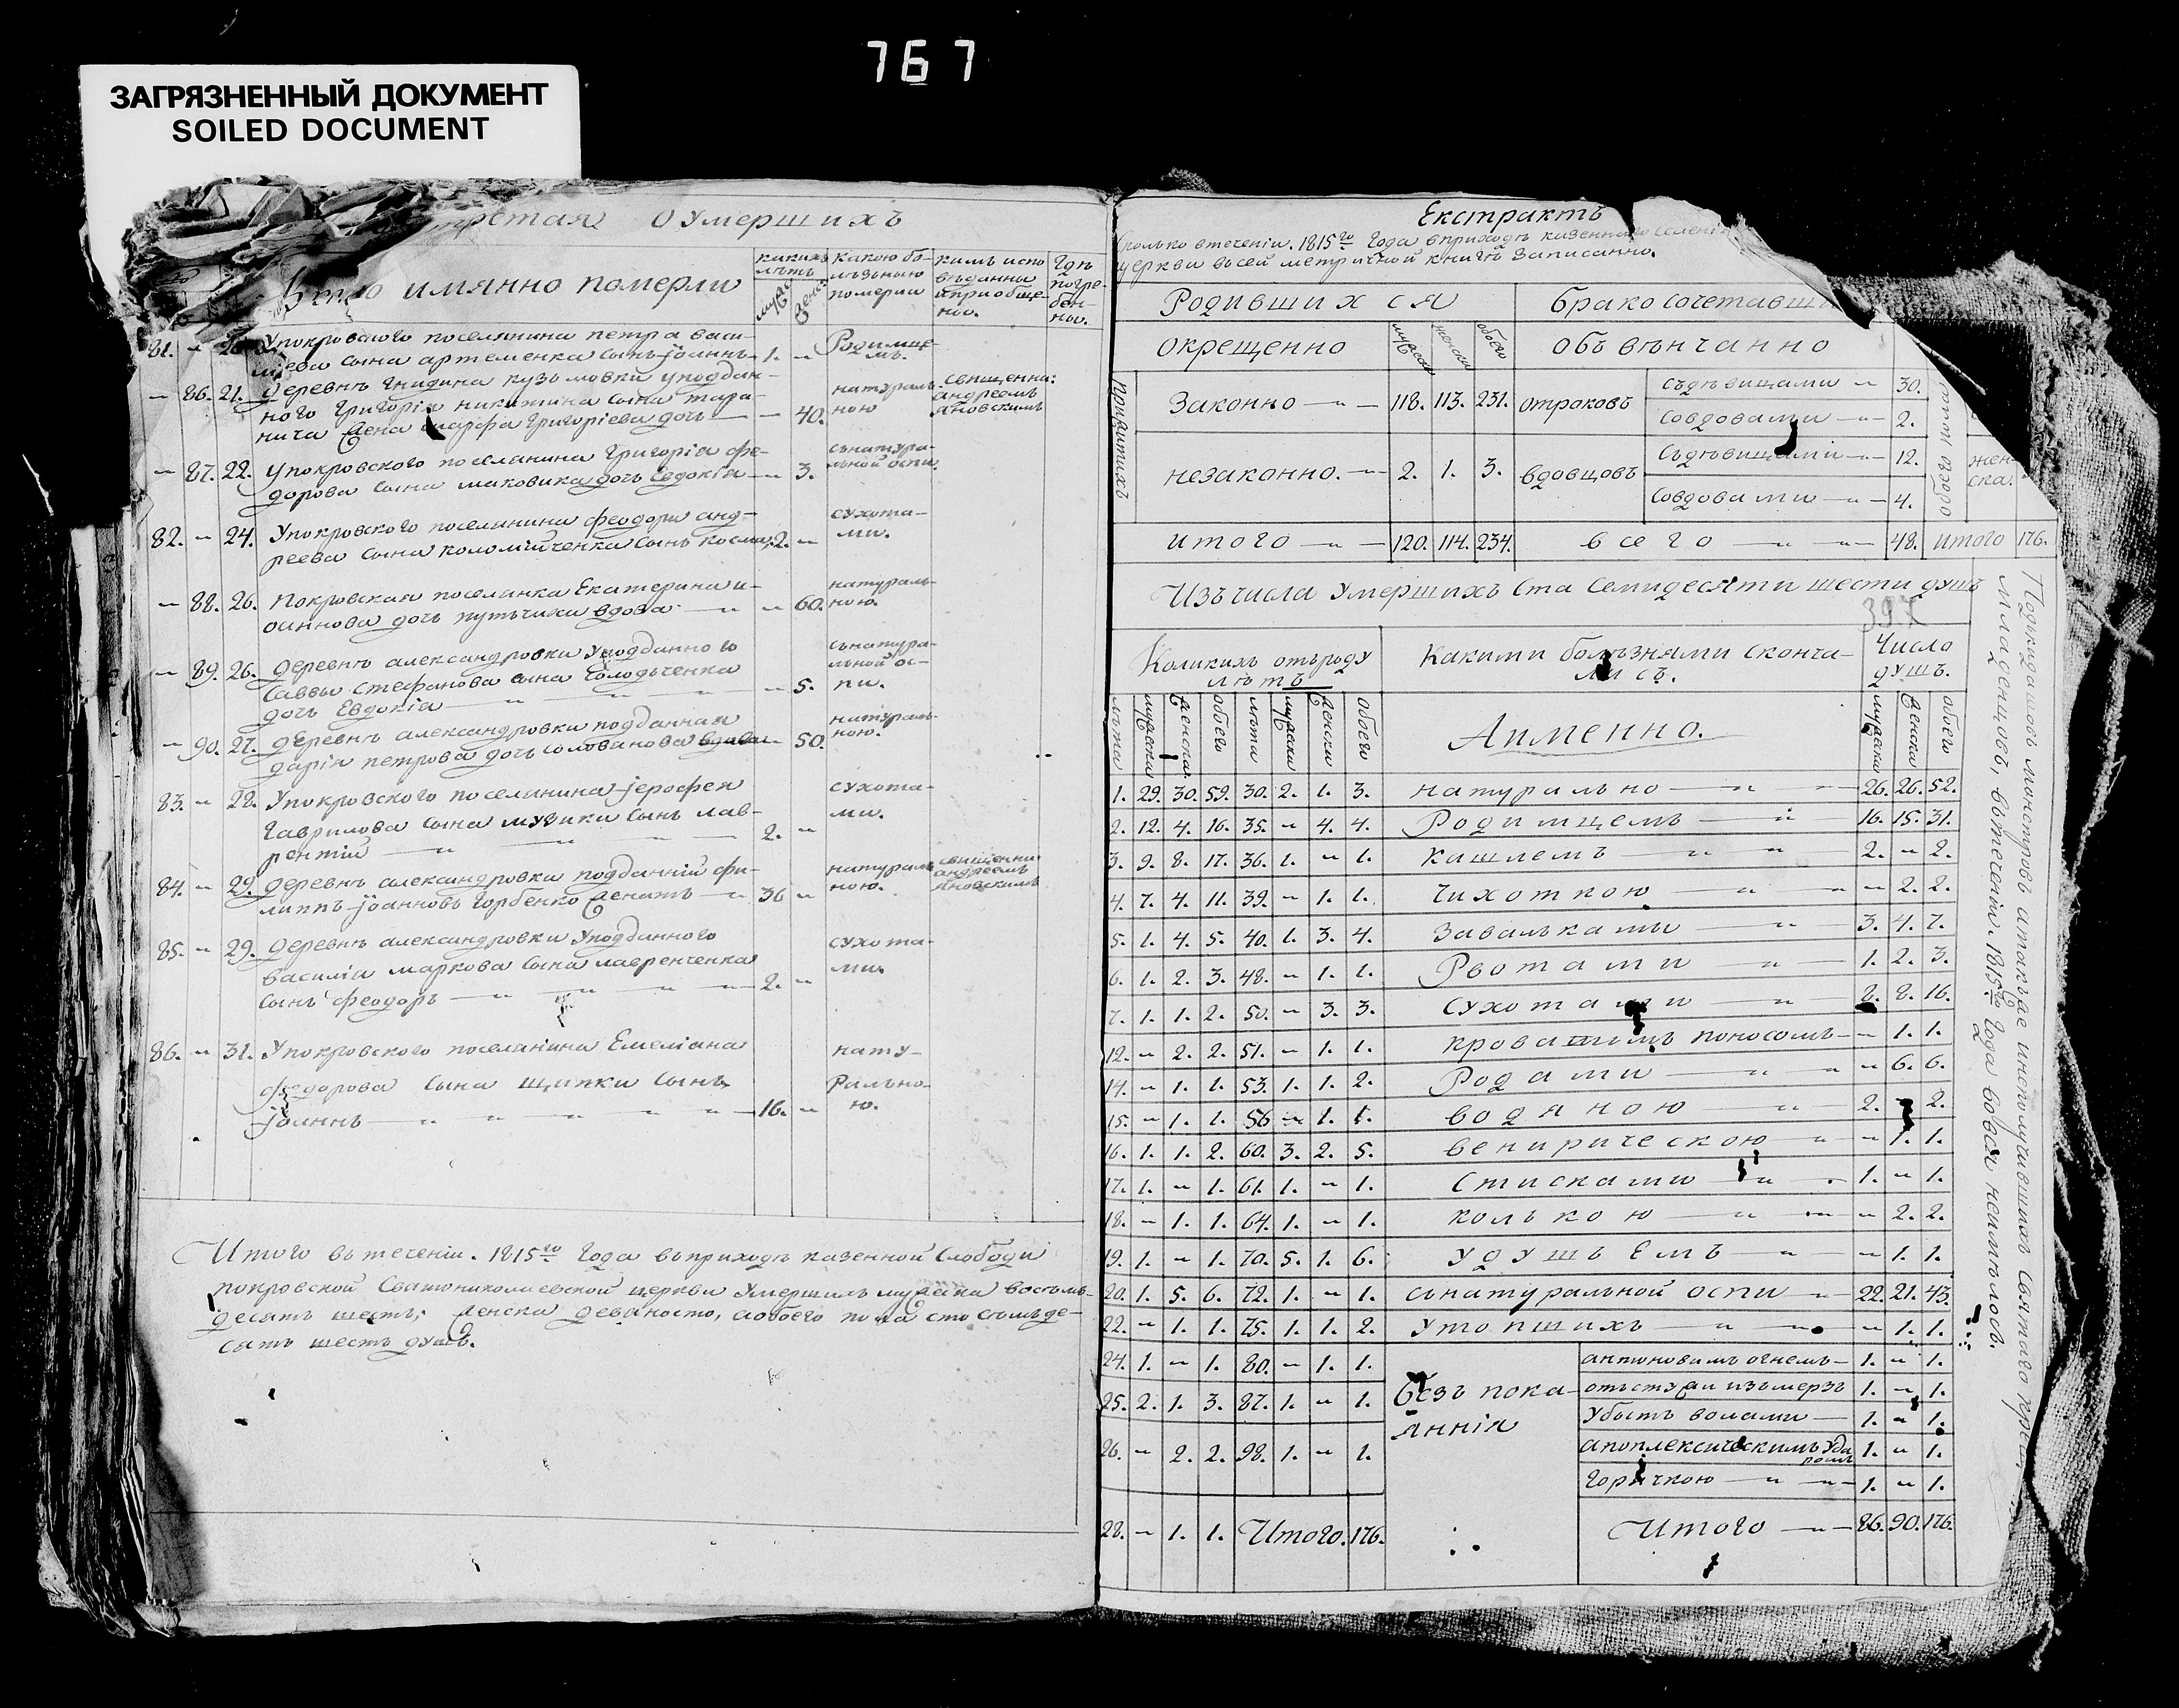 767
ЗАГРЯЗНЕННЫЙ ДОКУМЕНТ
SOILED DOCUMENT
о умершихъ
имянно померли
какихъ лѣтъ
какою бо-
лѣзнью
померли
кимъ испо
вѣданны
ипріобще-
ны.
Гдѣ
погре-
бен-
ны.
81. " Упокровского поселянина петра васи-
лиева сына артеменка сынъ іоаннъ 1. " Родимце-
мъ.
" 86. 21. Деревнѣ гнидина кузьмовки уподдан-
ного Григорія никитина сына тара-
нича жена марфа Григоріева дочь — " 40. натураль-
ною священни:
андреемъ
яновскимъ
" 87. 22. Упокровского поселянина Григорія фе-
дорова сына маковика дочь Евдокія — " 3. сънатура-
льной оспи.
82. " 24. Упокровского поселянина феодора анд-
реева сына коломійченка сынъ косма 2. " сухота-
ми.
" 88. 26. Покровская поселянка Екатерина и-
оаннова дочь путьчиха вдова — " 60. натураль-
ною.
" 89. 26. Деревнѣ александровки уподданного
Саввы Стефанова сына
дочь Евдокія — " 5. сънатура-
льной ос-
пи.
" 90. 27. Деревнѣ александровки подданная
дарія петрова дочь голованова вдова " 50. натураль-
ною.
83. " 28. Упокровского поселянина іерофея
Гаврилова сына музики сынъ лав-
рентій — 2. " сухота-
ми.
84. " 29. Деревнѣ александровки подданній фи-
липпъ іоанновъ Горбенко женатъ — 36 " натураль
ною. священни
андреемъ
яновскимъ
85. " 29. Деревнѣ александровки Уподданного
василія маркова сына лавренченка
сынъ феодоръ — 2. " сухота-
ми.
86. " 31. Упокровского поселянина Емеліана
федорова сына щипки сынъ
іоаннъ — 16. " нату-
рально-
ю.
Итого въ теченіи 1815го Года въприходѣ казенной Слободи
покровской Святониколаевской церкви Умершихъ мужеска восемь-
десятъ шесть; женска девяносто, аобоего пола сто семъде-
сятъ шесть душъ.
Екстрактъ
Сколько втеченіи 1815го Года вприходѣ казенного селені
церкви въсей метричной книгѣ Записанно.
Родившихся
Брако сочетавши
окрещенно мужеска женска обоего
объвѣнчанно
Законно — 118. 113. 231. отроковъ съдѣвицами — 30.
Совдовами — 2.
незаконно. — 2. 1. 3. вдовцовъ Съдѣвицами — 12.
Совдовами — 4.
жен-
ска.
итого — 120. 114. 234. всего — 48. итого 176.
Изъчисла Умершихъ Ста Семидесяти шести душъ
Коликихъ отъроду
лѣтъ
Какими болѣзнями сконча-
лись.
Число
душъ.
лѣта мужеска женска обоего лѣта мужеска женска обоего Аименно. мужеска женска обоего
1. 29. 30. 59. 30. 2. 1. 3. натурально — 26. 26. 52.
2. 12. 4. 16. 35. " 4. 4. Родимцемъ — 16. 15. 31.
3. 9. 8. 17. 36. 1. " 1. кашлемъ — 2. " 2.
4. 7. 4. 11. 39. " 1. 1. чихоткою — " 2. 2.
5. 1. 4. 5. 40. 1. 3. 4. Завалками — 3. 4. 7.
6. 1. 2. 3. 48. " 1. 1. Рвотами — 1. 2. 3.
7. 1. 1. 2. 50. " 3. 3. сухотами — 8. 8. 16.
12. " 2. 2. 51. " 1. 1. кровавимъ поносомъ — " 1. 1.
14. " 1. 1. 53. 1. 1. 2. Родами — " 6. 6.
15. " 1. 1. 56 " 1. 1. водяною — 2. " 2.
16. 1. 1. 2. 60. 3. 2. 5. венирическою — " 1. 1.
17. 1. " 1. 61. 1. " 1. стисками — 1. " 1.
18. " 1. 1. 64. 1. " 1. колькою — " 2. 2.
19. 1. " 1. 70. 5. 1. 6. удушьемъ — " 1. 1.
20. 1. 5. 6. 72. 1. " 1. сънатуральной оспи — 22. 21. 43.
22. " 1. 1. 75. 1. 1. 2. Утопшихъ — " 1. 1.
24. 1. " 1. 80. " 1. 1. Безъ пока-
янія антоновимъ огнемъ — 1. " 1.
25. 2. 1. 3. 87. 1. " 1. отъстужи изъмерзъ 1. " 1.
Убитъ волами — 1. " 1.
26. " 2. 2. 98. 1. " 1. апоплексическимъ уда
ромъ 1. " 1.
горячкою — 1. " 1.
28. " 1. 1. Итого. 176. Итого — 86. 90. 176.
Подкидишовъ монстровъ атакъже инеполучившихъ святаго кре
младенцовъ, втеченіи 1815го Года вовся неимѣлось.